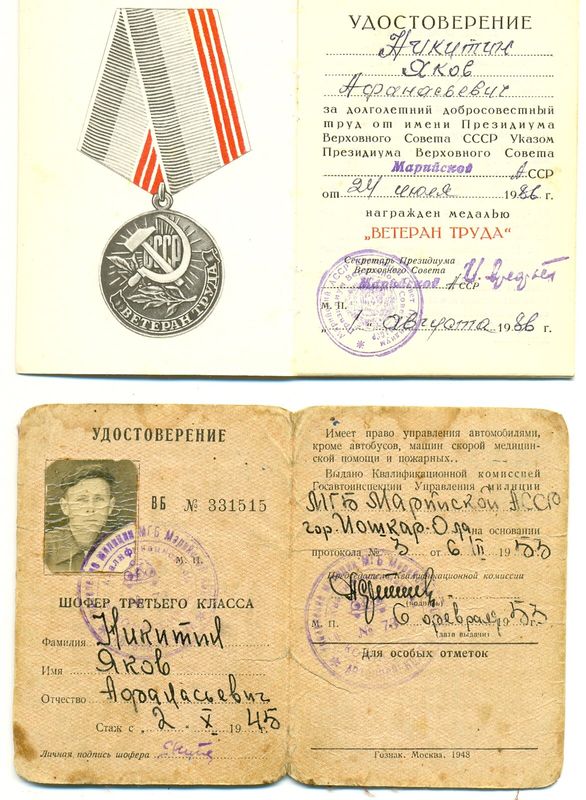 СССР
ВЕТЕРАН ТРУДА
УДОСТОВЕРЕНИЕ
Никитин
Яков
Афанасьевич
за долголетний добросовестный
труд от имени Президиума
Верховного Совета СССР Указом
Президиума Верховного Совета
Марийской АССР
от 24 июля 1986 г.
награжден медалью
„ВЕТЕРАН ТРУДА“
Секретарь Президиума
Верховного Совета
Марийской АССР
М. П.
„ 1 “ августа 1986 г.
УДОСТОВЕРЕНИЕ
ВБ № 331515
М. П.
ШОФЕР ТРЕТЬЕГО КЛАССА
Фамилия Никитин
Имя Яков
Отчество Афанасьевич
Стаж с 2. X 1945
Личная подпись шофера
Имеет право управления автомобилями,
кроме автобусов, машин скорой медицин-
ской помощи и пожарных.
Выдано Квалификационной комиссией
Госавтоинспекции Управления милиции
МГБ Марийской АССР
гор. Йошкар-Ола на основании
протокола № 3 от 6 II 1953
Председатель Квалификационной комиссии
(подпись)
М. П. 6 февраля 1953
(дата выдачи)
Для особых отметок
Гознак. Москва. 1948